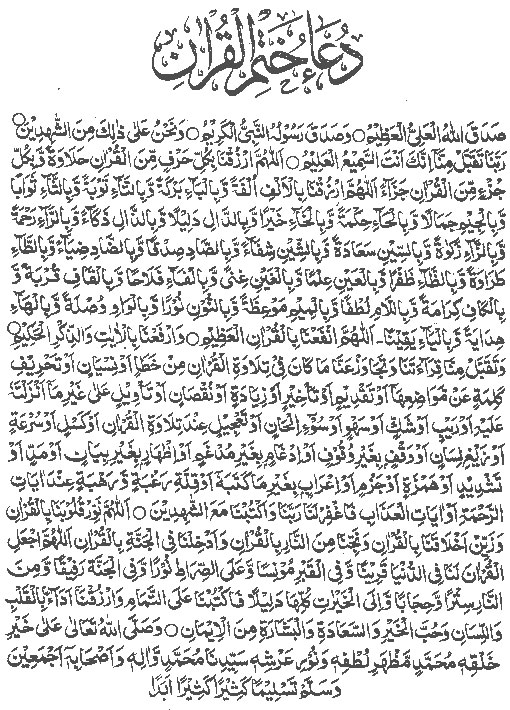 دُعَاءُ خَتْمِ الْقُرْاٰنِ
صَدَقَ اللهُ الْعَلِيُّ الْعَظِيْمُ ○ وَصَدَقَ رَسُوْلُهُ النَّبِيُّ الْكَرِيْمُ ○ وَنَحْنُ عَلٰى ذٰلِكَ مِنَ الشّٰهِدِيْنَ ○
رَبَّنَا تَقَبَّلْ مِنَّا اِنَّكَ اَنْتَ السَّمِيْعُ الْعَلِيْمُ ○ اَللّٰهُمَّ ارْزُقْنَا بِكُلِّ حَرْفٍ مِّنَ الْقُرْاٰنِ حَلَاوَةً وَّبِكُلِّ
جُزْءٍ مِّنَ الْقُرْاٰنِ جَزَآءً اَللّٰهُمَّ ارْزُقْنَا بِالْاَلِفِ اُلْفَةً وَّبِالْبَآءِ بَرَكَةً وَّبِالتَّآءِ تَوْبَةً وَّبِالثَّآءِ ثَوَابًا
وَّبِالْجِيْمِ جَمَالًا وَّبِالْحَآءِ حِكْمَةً وَّبِالْخَآءِ خَيْرًا وَّبِالدَّالِ دَلِيْلًا وَّبِالذَّالِ ذَكَآءً وَّبِالرَّآءِ رَحْمَةً
وَّبِالزَّآءِ زَكٰوةً وَّبِالسِّيْنِ سَعَادَةً وَّبِالشِّيْنِ شِفَآءً وَّبِالصَّادِ صِدْقًا وَّبِالضَّادِ ضِيَآءً وَّبِالطَّآءِ
طَرَاوَةً وَّبِالظَّآءِ ظَفَرًا وَّبِالْعَيْنِ عِلْمًا وَّبِالْغَيْنِ غِنًى وَّبِالْفَآءِ فَلَاحًا وَّبِالْقَافِ قُرْبَةً وَّ
بِالْكَافِ كَرَامَةً وَّبِاللَّامِ لُطْفًا وَّبِالْمِيْمِ مَوْعِظَةً وَّبِالنُّوْنِ نُوْرًا وَّبِالْوَاوِ وُصْلَةً وَّبِالْهَآءِ
هِدَايَةً وَّبِالْيَآءِ يَقِيْنًا۔ اَللّٰهُمَّ انْفَعْنَا بِالْقُرْاٰنِ الْعَظِيْمِ ○ وَارْفَعْنَا بِالْاٰيٰتِ وَالذِّكْرِ الْحَكِيْمِ ○
وَتَقَبَّلْ مِنَّا قِرَآءَتَنَا وَتَجَاوَزْ عَنَّا مَا كَانَ فِيْ تِلَاوَةِ الْقُرْاٰنِ مِنْ خَطَاٍ اَوْ نِسْيَانٍ اَوْ تَحْرِيْفِ
كَلِمَةٍ عَنْ مَّوَاضِعِهَا اَوْ تَقْدِيْمٍ اَوْ تَاْخِيْرٍ اَوْ زِيَادَةٍ اَوْ نُقْصَانٍ اَوْ تَاْوِيْلٍ عَلٰى غَيْرِ مَا اَنْزَلْتَهٗ
عَلَيْهِ اَوْ رَيْبٍ اَوْ شَكٍّ اَوْ سَهْوٍ اَوْ سُوْٓءِ اِلْحَانٍ اَوْ تَعْجِيْلٍ عِنْدَ تِلَاوَةِ الْقُرْاٰنِ اَوْ كَسَلٍ اَوْ سُرْعَةٍ
اَوْ زَيْغِ لِسَانٍ اَوْ وَقْفٍ بِغَيْرِ وُقُوْفٍ اَوْ اِدْغَامٍ بِغَيْرِ مُدْغَمٍ اَوْ اِظْهَارٍ بِغَيْرِ بَيَانٍ اَوْ مَدٍّ اَوْ
تَشْدِيْدٍ اَوْ هَمْزَةٍ اَوْ جَزْمٍ اَوْ اِعْرَابٍ بِغَيْرِ مَا كَتَبَهٗ اَوْ قِلَّةِ رَغْبَةٍ وَّرَهْبَةٍ عِنْدَ اٰيَاتِ
الرَّحْمَةِ اَوْ اٰيَاتِ الْعَذَابِ فَاغْفِرْ لَنَا رَبَّنَا وَاكْتُبْنَا مَعَ الشّٰهِدِيْنَ ○ اَللّٰهُمَّ نَوِّرْ قُلُوْبَنَا بِالْقُرْاٰنِ
وَزَيِّنْ اَخْلَاقَنَا بِالْقُرْاٰنِ وَنَجِّنَا مِنَ النَّارِ بِالْقُرْاٰنِ وَاَدْخِلْنَا فِي الْجَنَّةِ بِالْقُرْاٰنِ اَللّٰهُمَّ اجْعَلِ
الْقُرْاٰنَ لَنَا فِي الدُّنْيَا قَرِيْنًا وَّفِي الْقَبْرِ مُوْنِسًا وَّعَلَى الصِّرَاطِ نُوْرًا وَّفِي الْجَنَّةِ رَفِيْقًا وَّمِنَ
النَّارِ سِتْرًا وَّحِجَابًا وَّاِلَى الْخَيْرَاتِ كُلِّهَا دَلِيْلًا فَاكْتُبْنَا عَلَى التَّمَامِ وَارْزُقْنَا اَدَآءً بِالْقَلْبِ
وَاللِّسَانِ وَحُبَّ الْخَيْرِ وَالسَّعَادَةِ وَالْبَشَارَةِ مِنَ الْاِيْمَانِ ○ وَصَلَّى اللهُ تَعَالٰى عَلٰى خَيْرِ
خَلْقِهٖ مُحَمَّدٍ مَّظْهَرِ لُطْفِهٖ وَنُوْرِ عَرْشِهٖ سَيِّدِنَا مُحَمَّدٍ وَّاٰلِهٖ وَاَصْحَابِهٖٓ اَجْمَعِيْنَ
وَسَلَّمَ تَسْلِيْمًا كَثِيْرًا كَثِيْرًا اَبَدًا